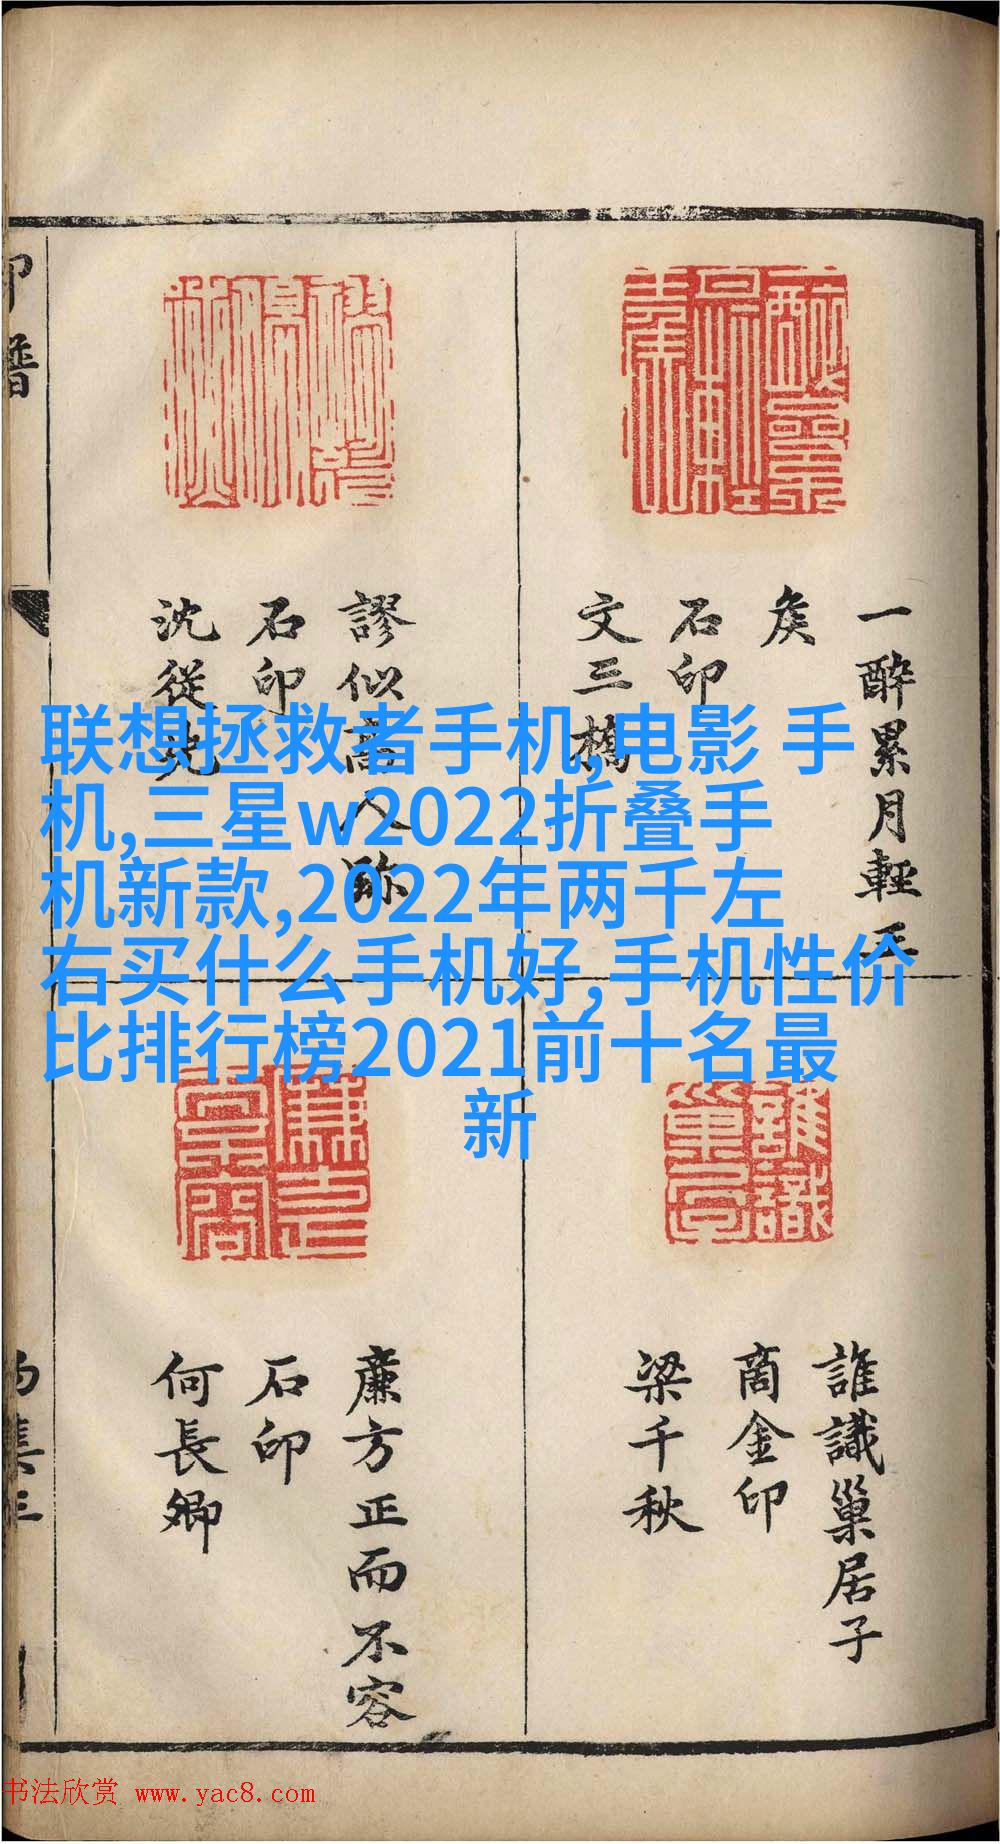 联想拯救者手机,电影 手
机,三星w2022折叠手
机新款,2022年两千左
右买什么手机好,手机性价
比排行榜2021前十名最
新
一醉累月輕王
矦
石印
文三橋
謬似高人跡
石印
沈從先
誰識巢居子
商金印
梁千秋
廉方正而不容
石印
何長卿
书法欣赏 www.yac8.com